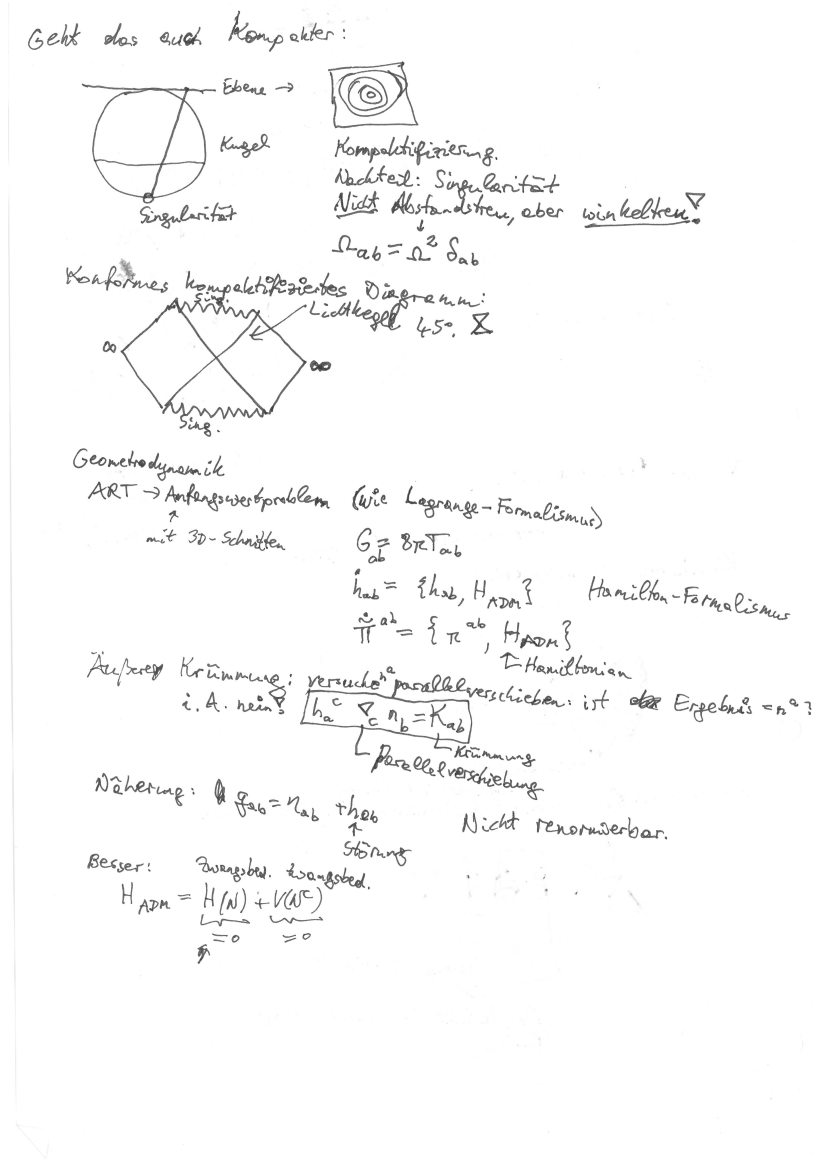 Geht das auch Kompakter:
Ebene →
Kugel
Singularität
Kompaktifizierung.
Nachteil: Singularität
Nicht Abstandstreu, aber winkeltreu!
↓
Ω_ab = Ω² δ_ab
Konformes kompaktifiziertes Diagramm:
Sing.
Lichtkegel 45°.
∞
∞
Sing.
Geometrodynamik
ART → Anfangswertproblem (wie Lagrange-Formalismus)
↑
mit 3D-Schnitten
G_ab = 8πT_ab
ḣ_ab = {h_ab, H_ADM} Hamilton-Formalismus
π̇^ab = {π^ab, H_ADM}
Hamiltonian
Äußere Krümmung: versuche n^a parallelverschieben: ist Ergebnis = n^a?
i. A. nein! h_a^c ∇_c n_b = K_ab
Krümmung
Parallelverschiebung
Näherung: g_ab = η_ab + h_ab
↑
Störung
Nicht renormierbar.
Besser: Zwangsbed. Zwangsbed.
H_ADM = H(N) + V(N^c)
=0 =0